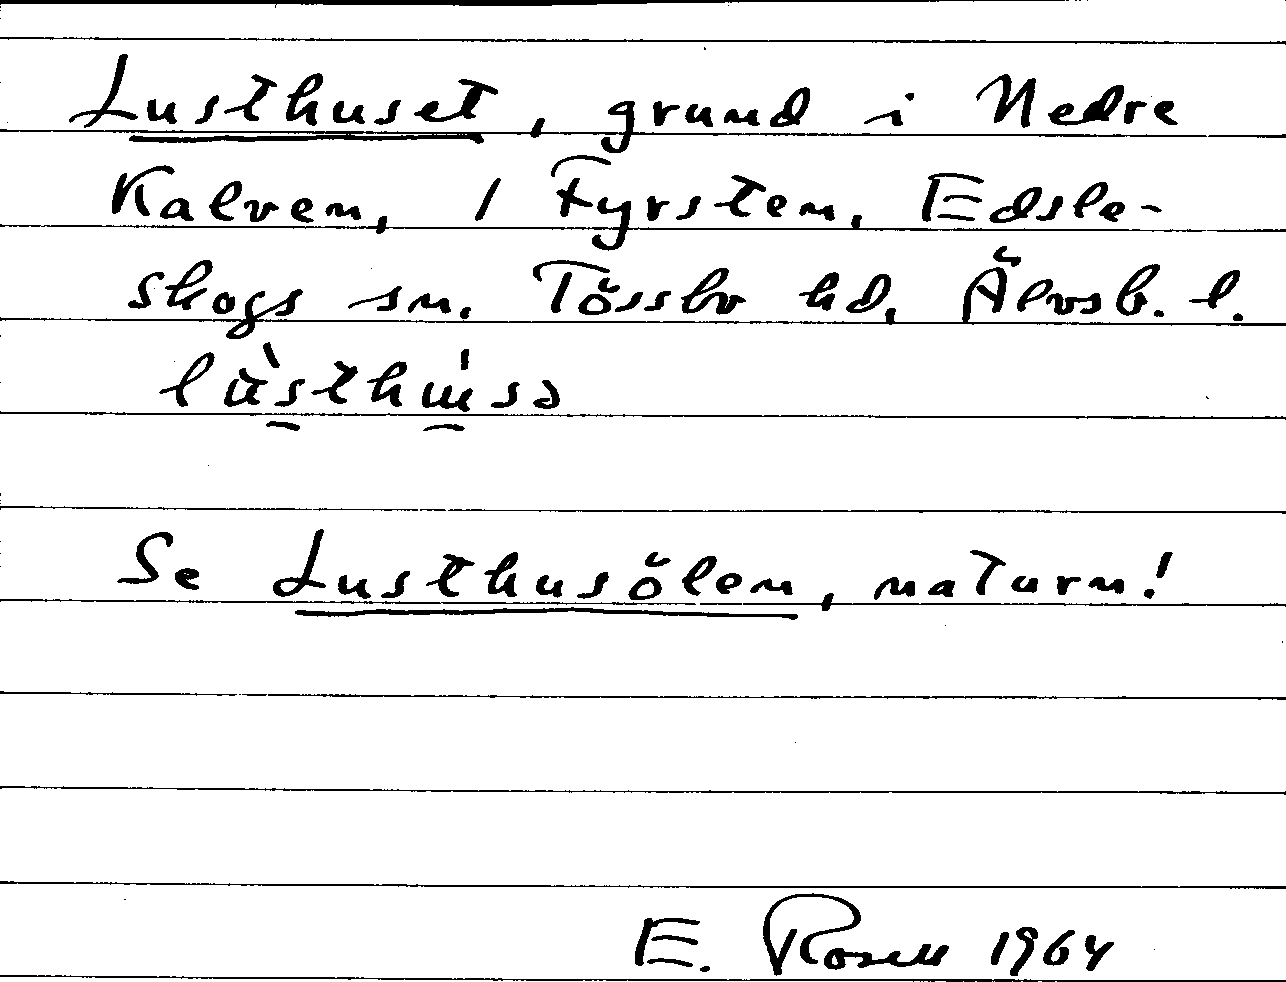 Lusthuset, grund i Nedre
Kalven, / Fyrsten, Edsle-
skogs sn. Tössbo hd, Älvsb. l.
lùsthu̇́sə
Se Lusthusölen, naturn!
E. Rosell 1964